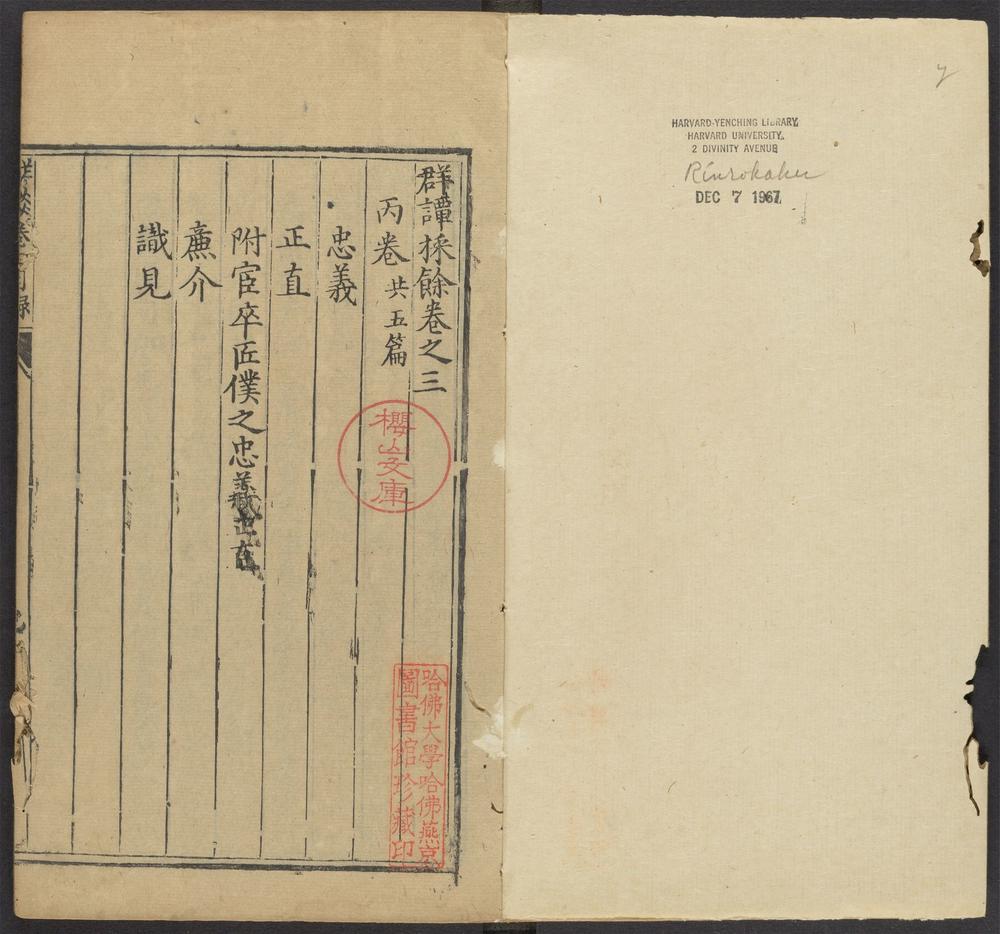 HARVARD-YENCHING LIBRARY
HARVARD UNIVERSITY
2 DIVINITY AVENUE
Rinrokaku
DEC 7 1967
群譚採餘卷之三
丙卷 共五篇
忠義
正直
附宦卒匠僕之忠義
廉介
識見
櫻山文庫
哈佛大學哈佛燕京
圖書館珍藏印